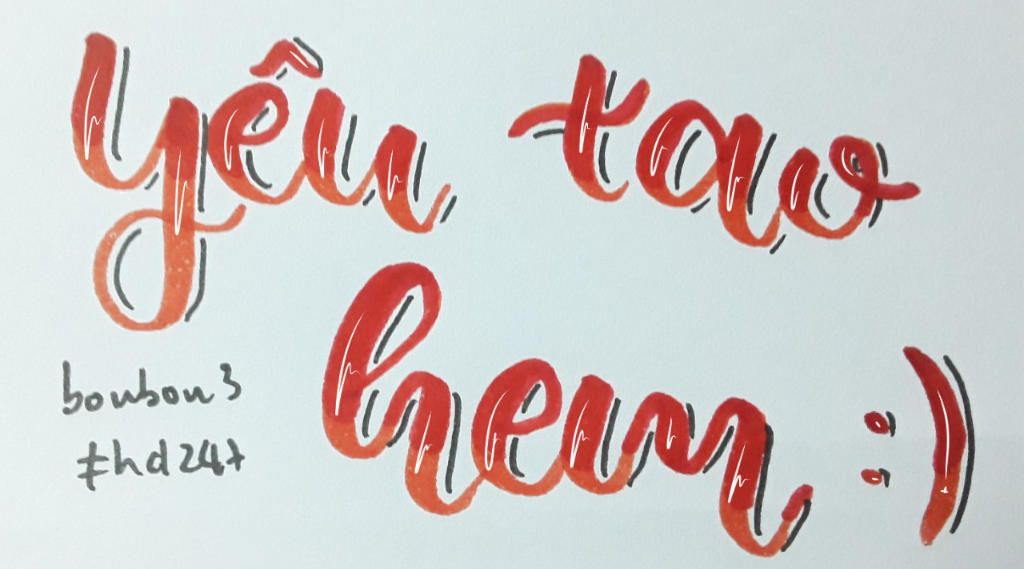 yêu tao
hem :)
bonbon3
#hd247